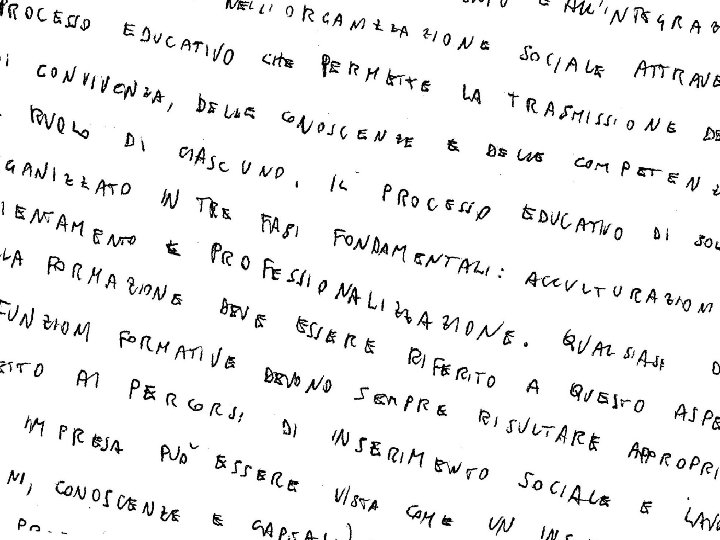 NELL'ORGANIZZAZIONE SOCIALE ATTRAVE
PROCESSO EDUCATIVO CHE PERMETTE LA TRASMISSIONE DE
DI CONVIVENZA, DELLE CONOSCENZE E DELLE COMPETENZ
RUOLO DI CIASCUNO. IL PROCESSO EDUCATIVO DI SOL
GANIZZATO IN TRE FASI FONDAMENTALI: ACCULTURAZION
IENTAMENTO E PROFESSIONALIZZAZIONE. QUALSIASI D
LA FORMAZIONE DEVE ESSERE RIFERITO A QUESTO ASPE
FUNZIONI FORMATIVE DEVONO SEMPRE RISULTARE APPROPRI
ETTO AI PERCORSI DI INSERIMENTO SOCIALE E LAVO
IMPRESA PUO' ESSERE VISTA COME UN INS
NI, CONOSCENZE E CAPITALI)